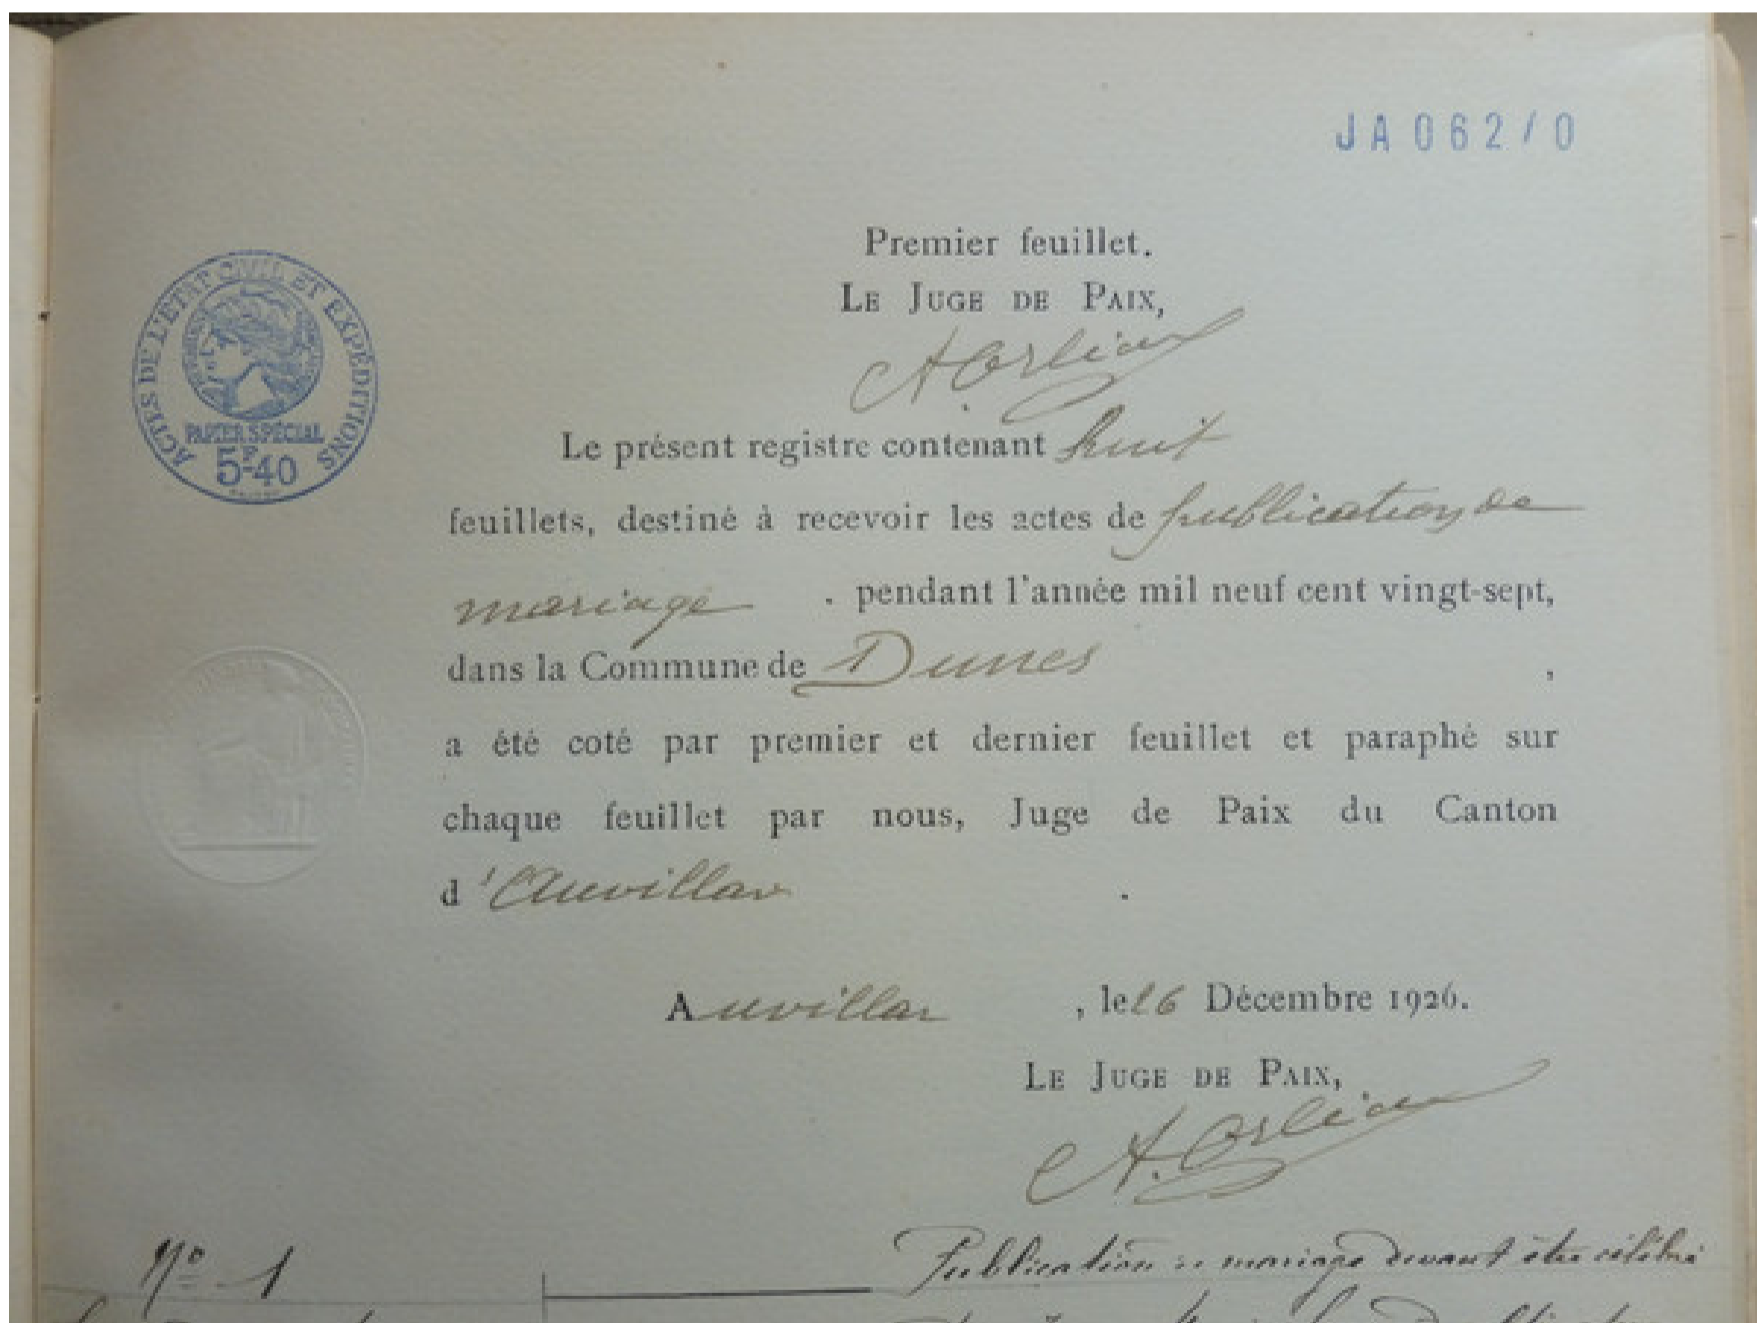 JA 062/0
Premier feuillet.
LE JUGE DE PAIX,
ACTES DE L'ÉTAT CIVIL ET EXPÉDITIONS
PAPIER SPÉCIAL
5F40
Le présent registre contenant huit
feuillets, destiné à recevoir les actes de publication de
mariage . pendant l'année mil neuf cent vingt-sept,
dans la Commune de Dunes ,
a été coté par premier et dernier feuillet et paraphé sur
chaque feuillet par nous, Juge de Paix du Canton
d'Auvillar .
Auvillar , le 16 Décembre 1926.
LE JUGE DE PAIX,
Nº 1
Publication de mariage devant être célébré